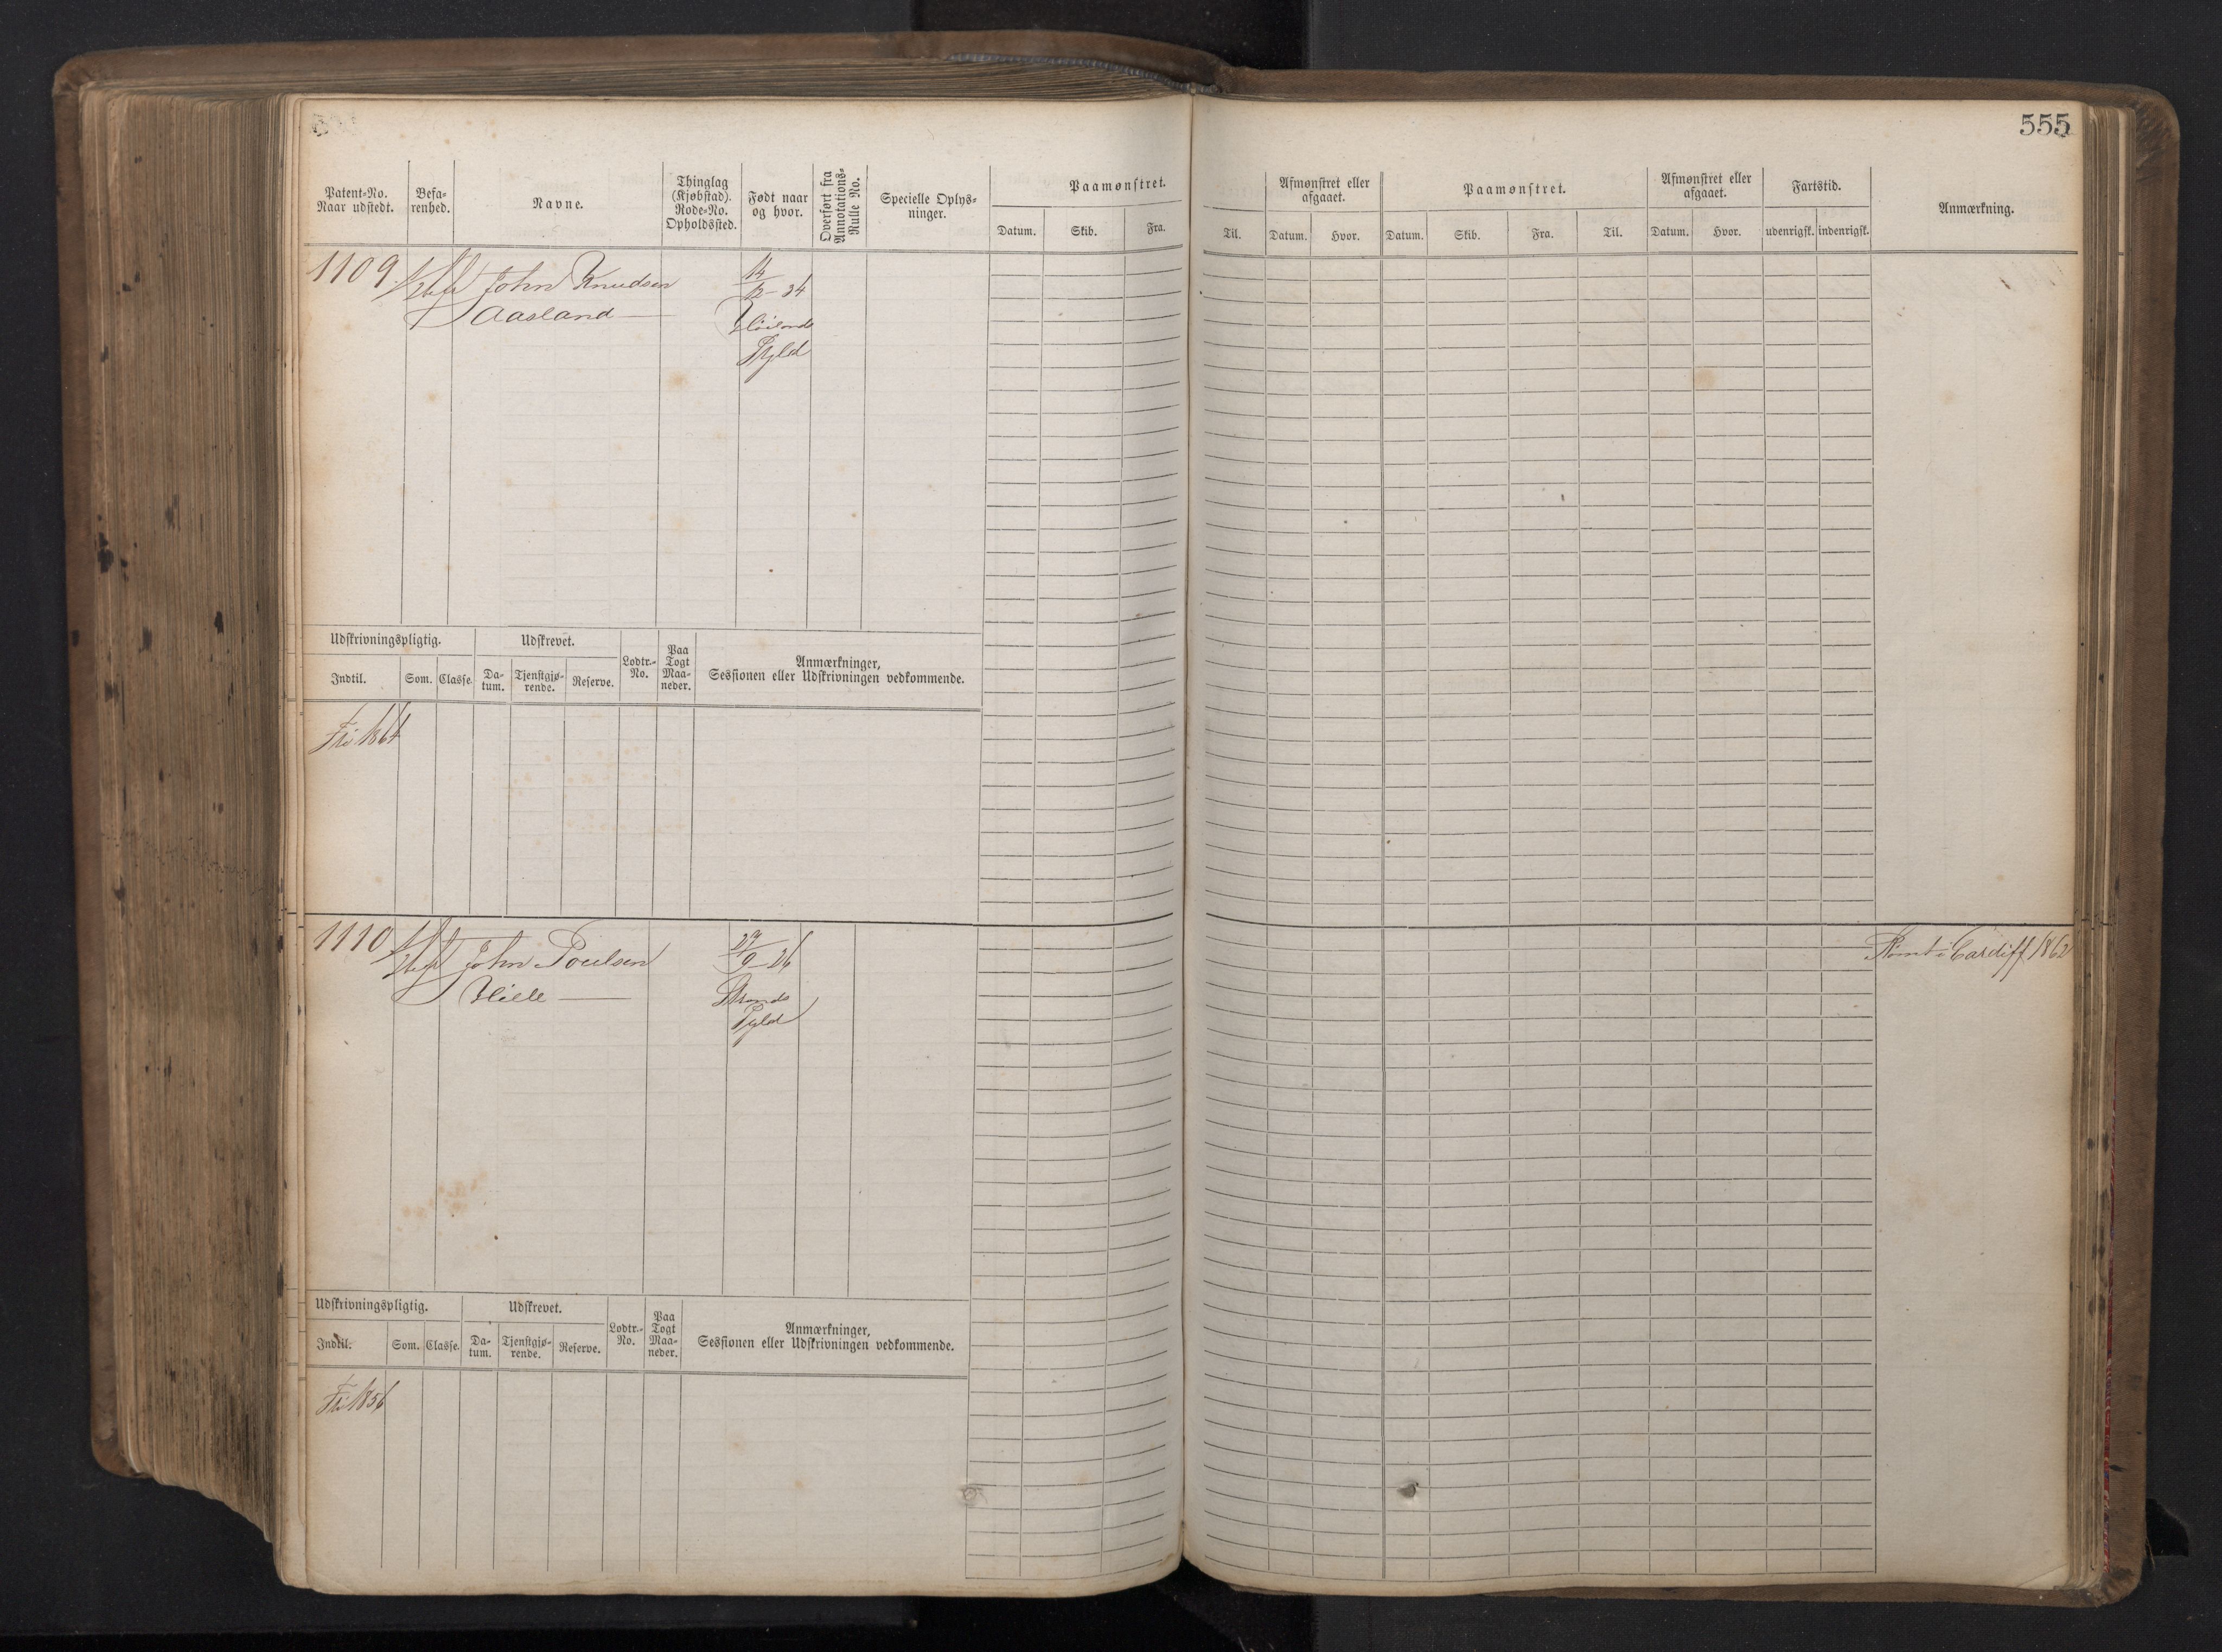 555
Patent-No. Naar udstedt.
Befa-renhed.
Navne.
Thinglag (Kjøbstad). Rode-No. Opholdssted.
Født naar og hvor.
Overført fra Annotations-Rulle No.
Specielle Oplys-ninger.
Paamønstret.
Datum. Skib. Fra.
Til.
Afmønstret eller afgaaet.
Datum. Hvor.
Paamønstret.
Datum. Skib. Fra. Til.
Afmønstret eller afgaaet.
Datum. Hvor.
Fartstid.
udenrigsk. indenrigsk.
Anmærkning.
1109. John Knudsen 14/12-34
Aasland
Høilands
Pgld
Udskrivningspligtig. Udskrevet. Lodtr.-No. Paa Togt Maa-neder. Anmærkninger,
Sessionen eller Udskrivningen vedkommende.
Indtil. Som. Classe. Da-tum. Tjenstgjø-rende. Reserve.
Fri 1864
1110 John Poulsen 27/9-26 Rømt i Cardiff 1862
Hille
Strands
Pgld
Udskrivningspligtig. Udskrevet. Lodtr.-No. Paa Togt Maa-neder. Anmærkninger,
Sessionen eller Udskrivningen vedkommende.
Indtil. Som. Classe. Da-tum. Tjenstgjø-rende. Reserve.
Fri 1856